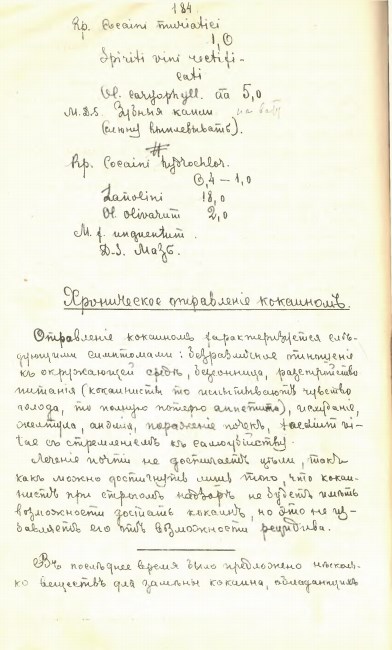 184.
Rp. Cocaini muriatici
1,0
Spiriti vini rectifi-
cati
Ol. caryophyll. āā 5,0
M.D.S. Зубныя капли на вату
(слюну выплевывать).
#
Rp. Cocaini hydrochlor.
0,4 — 1,0
Lanolini 18,0
Ol. olivarum 2,0
M. f. unguentum.
D.S. Мазь.
Хроническое отравленіе кокаиномъ.
Отравленіе кокаиномъ характеризуется слѣ-
дующими симптомами: безразличное отношеніе
къ окружающей средѣ, безсонница, разстройство
питанія (кокаинисты то испытываютъ чувство
голода, то полную потерю аппетита), исхуданіе,
желтуха, анэмія, пораженіе почекъ, taedium vi-
tae съ стремленіемъ къ самоубійству.
Леченіе почти не достигаетъ цѣли, такъ
какъ можно достигнуть лишь того, что кокаи-
нистъ при строгомъ надзорѣ не будетъ имѣть
возможности достать кокаинъ, но это не из-
бавляетъ его отъ возможности рецидива.
Въ послѣднее время было предложено нѣсколь-
ко веществъ для замѣны кокаина, обладающихъ